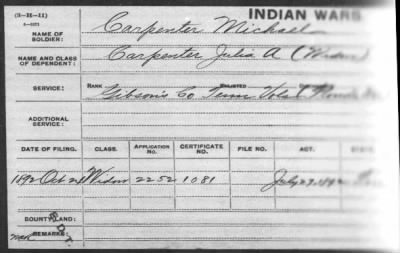 (3-21-11)
INDIAN WARS
NAME OF SOLDIER: Carpenter Michael
NAME AND CLASS OF DEPENDENT: Carpenter Julia A (Widow)
SERVICE: RANK ENLISTED
Gibson's Co Tenn Vols
ADDITIONAL SERVICE:
DATE OF FILING. CLASS. APPLICATION NO. CERTIFICATE NO. FILE NO. ACT.
1892 Oct 28 Widow 2252 1081 July 27, 1892
BOUNTY LAND:
REMARKS: